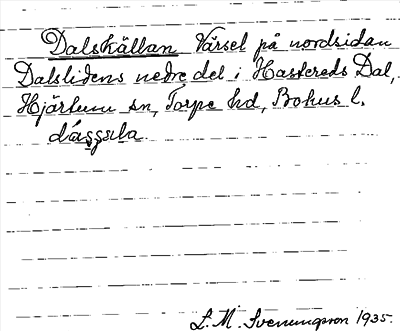 Dalskällan Värsel på nordsidan
Dalslidens nedre del i Hastereds Dal,
Hjärtum sn, Torpe hd, Bohus l.
L. M. Svenungsson 1935.